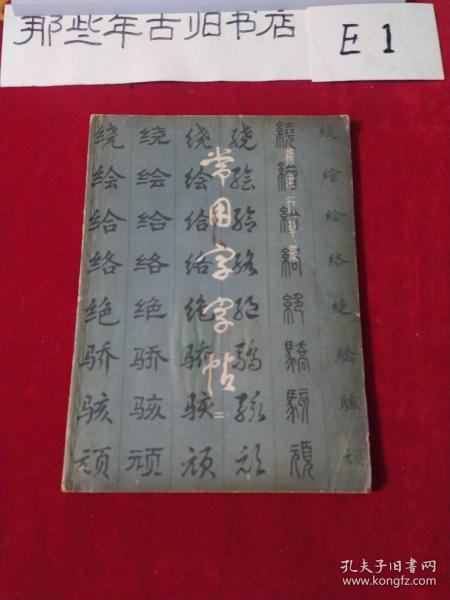 那些年古旧书店
E1
常用字字帖
二
隶楷行草篆
绕 绕 绕 绕 繞 繞
绘 绘 绘 绘 繪 繪
给 给 给 给 給 給
络 络 络 络 絡 絡
绝 绝 绝 绝 絕 絶
骄 骄 骄 驕 驕 驕
骇 骇 骇 骇 駭 駭
顽 顽 顽 顽 頑
孔夫子旧书网
www.kongfz.com